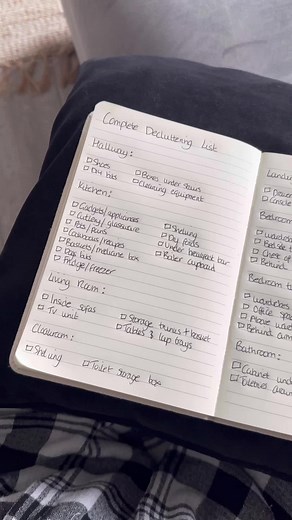 Complete Decluttering List
Hallway:
☐ Shoes
☐ Boxes under stairs
☐ DIY bits
☐ Cleaning equipment
Kitchen:
☐ Gadgets/appliances
☐ Cutlery/glassware
☐ Pots/pans
☐ Cookbooks/recipes
☐ Baskets/medicine box
☐ Dog bits
☐ Fridge/freezer
☐ Shelving
☐ Dry foods
☐ Under breakfast bar
☐ Boiler cupboard
Living Room:
☐ Inside sofas
☐ TV unit
☐ Storage trunks + basket
☐ Tables & lap trays
Cloakroom:
☐ Shelving
☐ Toilet storage box
Landin
☐ Console
Bedroom
☐ Wardrobes
☐ Bedside
☐ Chest of
☐ Behind
Bedroom t
☐ Wardrobes
☐ Office Spa
☐ Above ward
☐ Behind curt
Bathroom:
☐ Cabinet unde
☐ Toiletries aroun